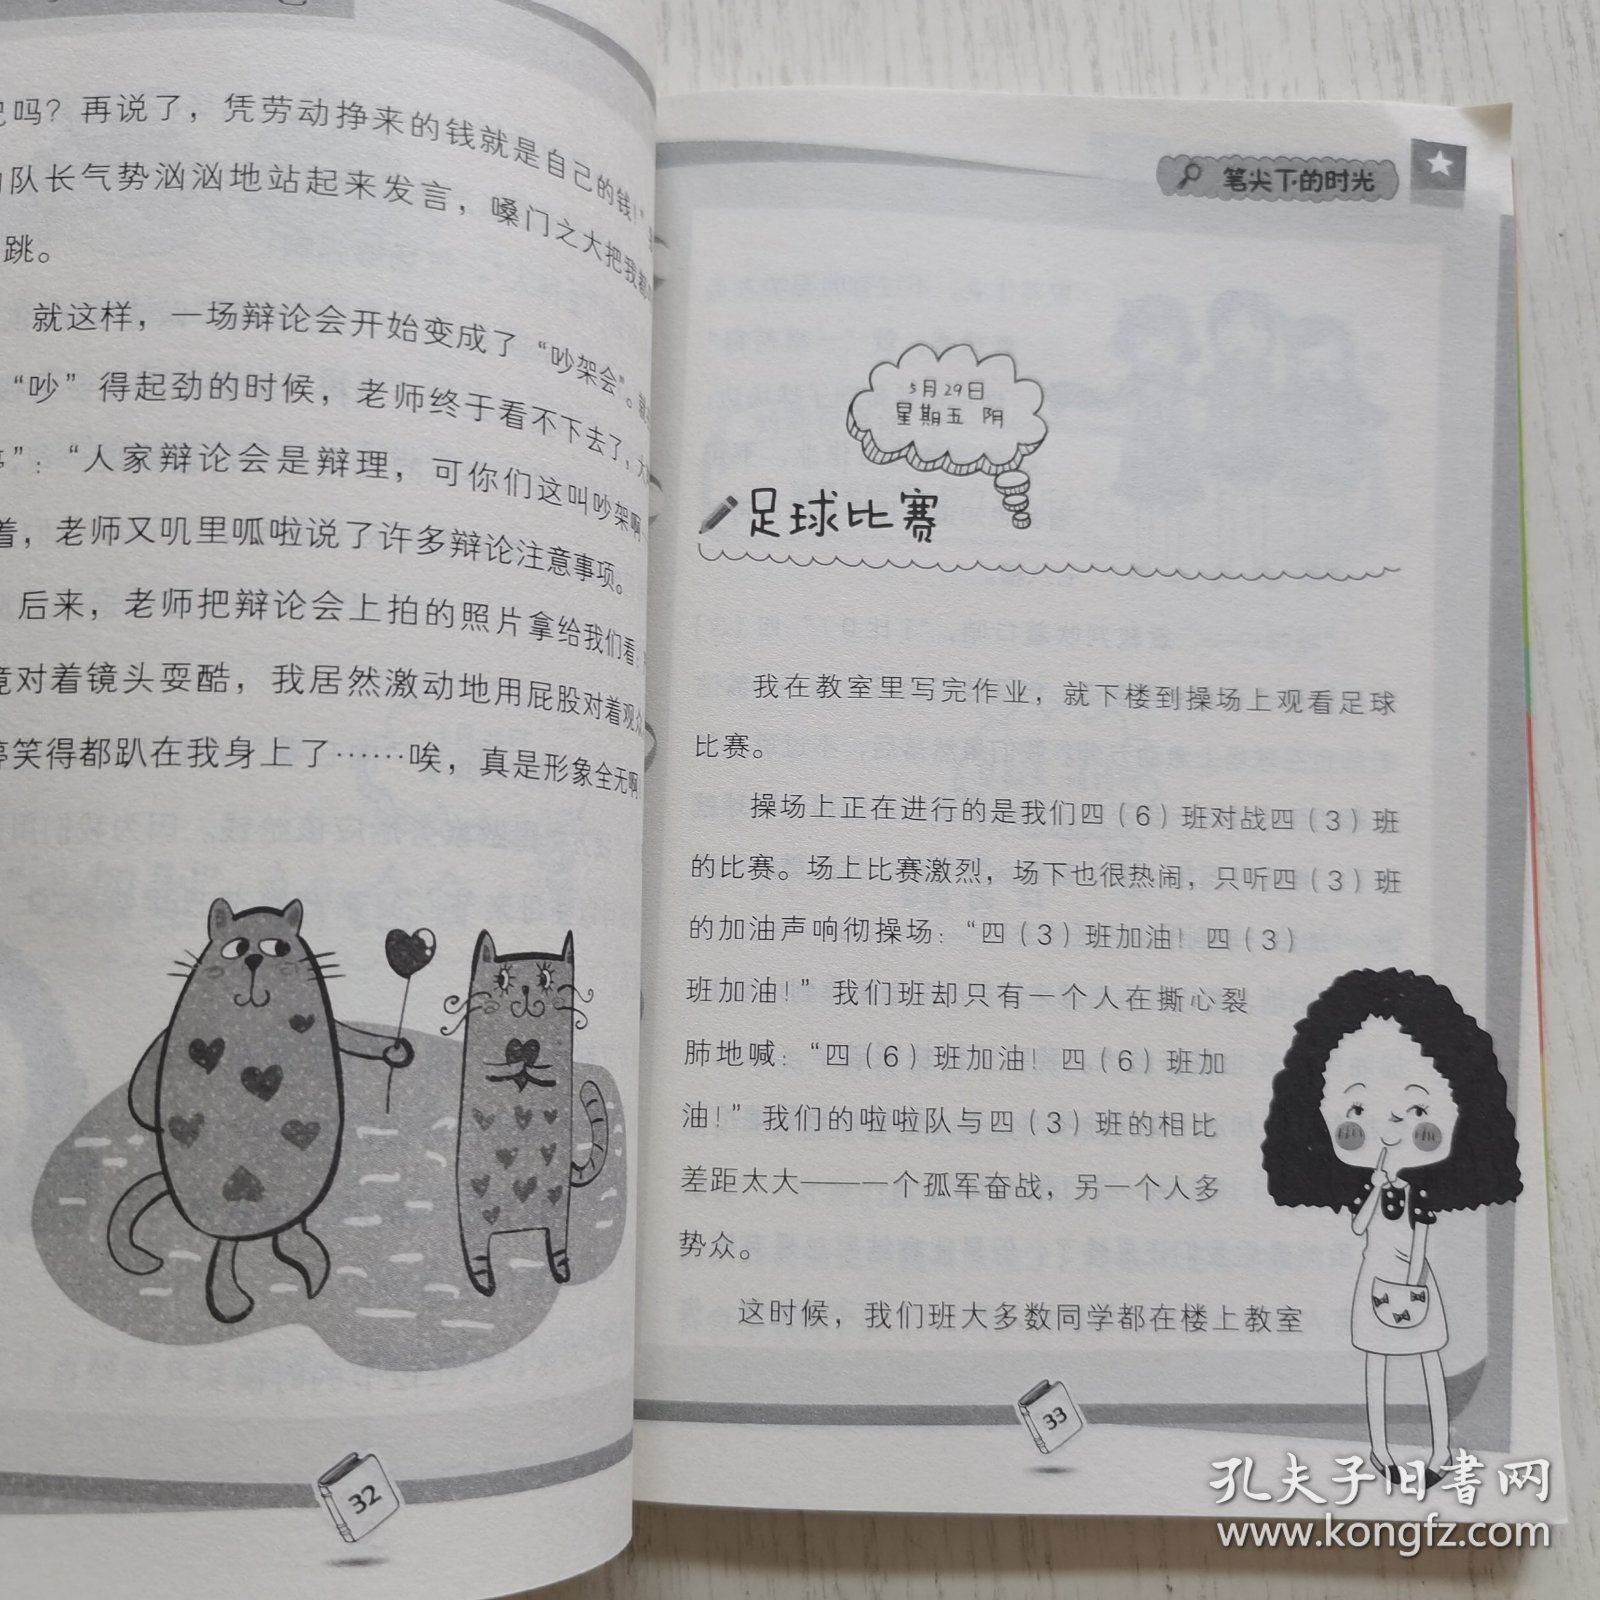 吗？再说了，凭劳动挣来的钱就是自己的钱！”
队长气势汹汹地站起来发言，嗓门之大把我都
跳。
就这样，一场辩论会开始变成了“吵架会”。
“吵”得起劲的时候，老师终于看不下去了，
”：“人家辩论会是辩理，可你们这叫吵架啊
着，老师又叽里呱啦说了许多辩论注意事项。
后来，老师把辩论会上拍的照片拿给我们看：
竟对着镜头耍酷，我居然激动地用屁股对着观众
笑得都趴在我身上了……唉，真是形象全无啊
32
笔尖下的时光
5月29日
星期五 阴
足球比赛
我在教室里写完作业，就下楼到操场上观看足球
比赛。
操场上正在进行的是我们四（6）班对战四（3）班
的比赛。场上比赛激烈，场下也很热闹，只听四（3）班
的加油声响彻操场：“四（3）班加油！四（3）
班加油！”我们班却只有一个人在撕心裂
肺地喊：“四（6）班加油！四（6）班加
油！”我们的啦啦队与四（3）班的相比
差距太大——一个孤军奋战，另一个人多
势众。
这时候，我们班大多数同学都在楼上教室
33
孔夫子旧书网
www.kongfz.com